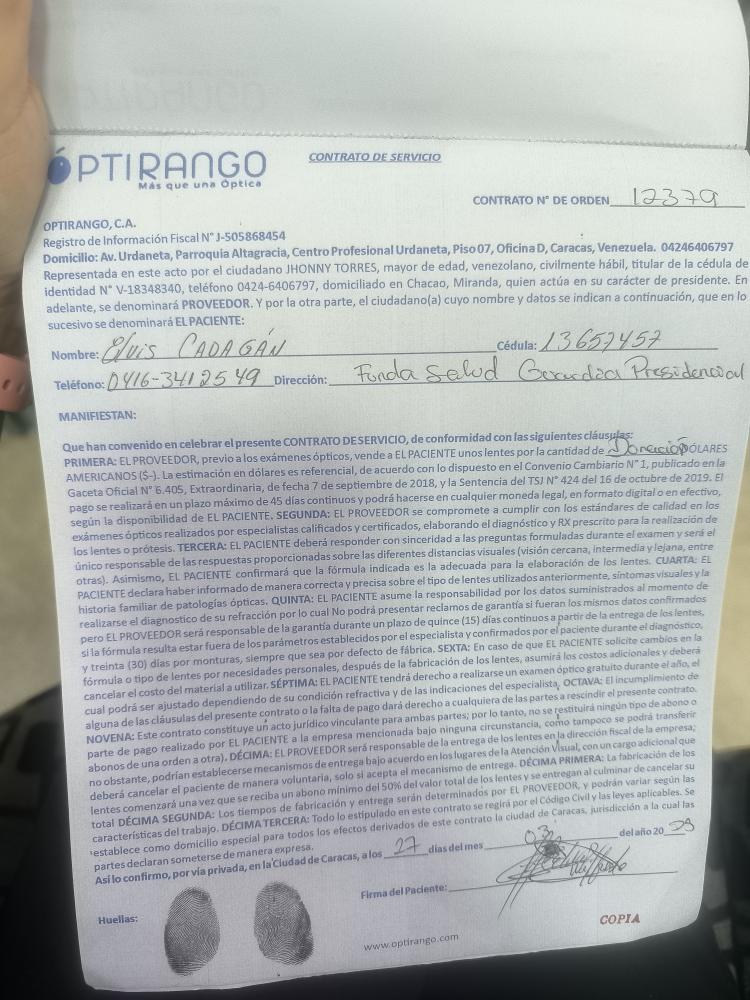 ÓPTIRANGO
Más que una Óptica
CONTRATO DE SERVICIO
CONTRATO N° DE ORDEN 12379
OPTIRANGO, C.A.
Registro de Información Fiscal N° J-505868454
Domicilio: Av. Urdaneta, Parroquia Altagracia, Centro Profesional Urdaneta, Piso 07, Oficina D, Caracas, Venezuela. 04246406797
Representada en este acto por el ciudadano JHONNY TORRES, mayor de edad, venezolano, civilmente hábil, titular de la cédula de
identidad N° V-18348340, teléfono 0424-6406797, domiciliado en Chacao, Miranda, quien actúa en su carácter de presidente. En
adelante, se denominará PROVEEDOR. Y por la otra parte, el ciudadano(a) cuyo nombre y datos se indican a continuación, que en lo
sucesivo se denominará EL PACIENTE:
Nombre: Elvis CADAGÁN Cédula: 13657457
Teléfono: 0416-3412549 Dirección: Funda Salud Guardia Presidencial
MANIFIESTAN:
Que han convenido en celebrar el presente CONTRATO DE SERVICIO, de conformidad con las siguientes cláusulas:
PRIMERA: EL PROVEEDOR, previo a los exámenes ópticos, vende a EL PACIENTE unos lentes por la cantidad de Donación DÓLARES
AMERICANOS ($-). La estimación en dólares es referencial, de acuerdo con lo dispuesto en el Convenio Cambiario N° 1, publicado en la
Gaceta Oficial N° 6.405, Extraordinaria, de fecha 7 de septiembre de 2018, y la Sentencia del TSJ N° 424 del 16 de octubre de 2019. El
pago se realizará en un plazo máximo de 45 días continuos y podrá hacerse en cualquier moneda legal, en formato digital o en efectivo,
según la disponibilidad de EL PACIENTE. SEGUNDA: EL PROVEEDOR se compromete a cumplir con los estándares de calidad en los
exámenes ópticos realizados por especialistas calificados y certificados, elaborando el diagnóstico y RX prescrito para la realización de
los lentes o prótesis. TERCERA: EL PACIENTE deberá responder con sinceridad a las preguntas formuladas durante el examen y será el
único responsable de las respuestas proporcionadas sobre las diferentes distancias visuales (visión cercana, intermedia y lejana, entre
otras). Asimismo, EL PACIENTE confirmará que la fórmula indicada es la adecuada para la elaboración de los lentes. CUARTA: EL
PACIENTE declara haber informado de manera correcta y precisa sobre el tipo de lentes utilizados anteriormente, síntomas visuales y la
historia familiar de patologías ópticas. QUINTA: EL PACIENTE asume la responsabilidad por los datos suministrados al momento de
realizarse el diagnostico de su refracción por lo cual No podrá presentar reclamos de garantía si fueran los mismos datos confirmados
pero EL PROVEEDOR será responsable de la garantía durante un plazo de quince (15) días continuos a partir de la entrega de los lentes,
si la fórmula resulta estar fuera de los parámetros establecidos por el especialista y confirmados por el paciente durante el diagnóstico,
y treinta (30) días por monturas, siempre que sea por defecto de fábrica. SEXTA: En caso de que EL PACIENTE solicite cambios en la
fórmula o tipo de lentes por necesidades personales, después de la fabricación de los lentes, asumirá los costos adicionales y deberá
cancelar el costo del material a utilizar. SÉPTIMA: EL PACIENTE tendrá derecho a realizarse un examen óptico gratuito durante el año, el
cual podrá ser ajustado dependiendo de su condición refractiva y de las indicaciones del especialista, OCTAVA: El incumplimiento de
alguna de las cláusulas del presente contrato o la falta de pago dará derecho a cualquiera de las partes a rescindir el presente contrato.
NOVENA: Este contrato constituye un acto jurídico vinculante para ambas partes; por lo tanto, no se restituirá ningún tipo de abono o
parte de pago realizado por EL PACIENTE a la empresa mencionada bajo ninguna circunstancia, como tampoco se podrá transferir
abonos de una orden a otra). DÉCIMA: EL PROVEEDOR será responsable de la entrega de los lentes en la dirección fiscal de la empresa;
no obstante, podrían establecerse mecanismos de entrega bajo acuerdo en los lugares de la Atención Visual, con un cargo adicional que
deberá cancelar el paciente de manera voluntaria, solo si acepta el mecanismo de entrega. DÉCIMA PRIMERA: La fabricación de los
lentes comenzará una vez que se reciba un abono mínimo del 50% del valor total de los lentes y se entregan al culminar de cancelar su
total DÉCIMA SEGUNDA: Los tiempos de fabricación y entrega serán determinados por EL PROVEEDOR, y podrán variar según las
características del trabajo. DÉCIMA TERCERA: Todo lo estipulado en este contrato se regirá por el Código Civil y las leyes aplicables. Se
establece como domicilio especial para todos los efectos derivados de este contrato la ciudad de Caracas, jurisdicción a la cual las
partes declaran someterse de manera expresa.
Así lo confirmo, por vía privada, en la Ciudad de Caracas, a los 27 días del mes 03 del año 20
Firma del Paciente:
Huellas:
COPIA
www.optirango.com